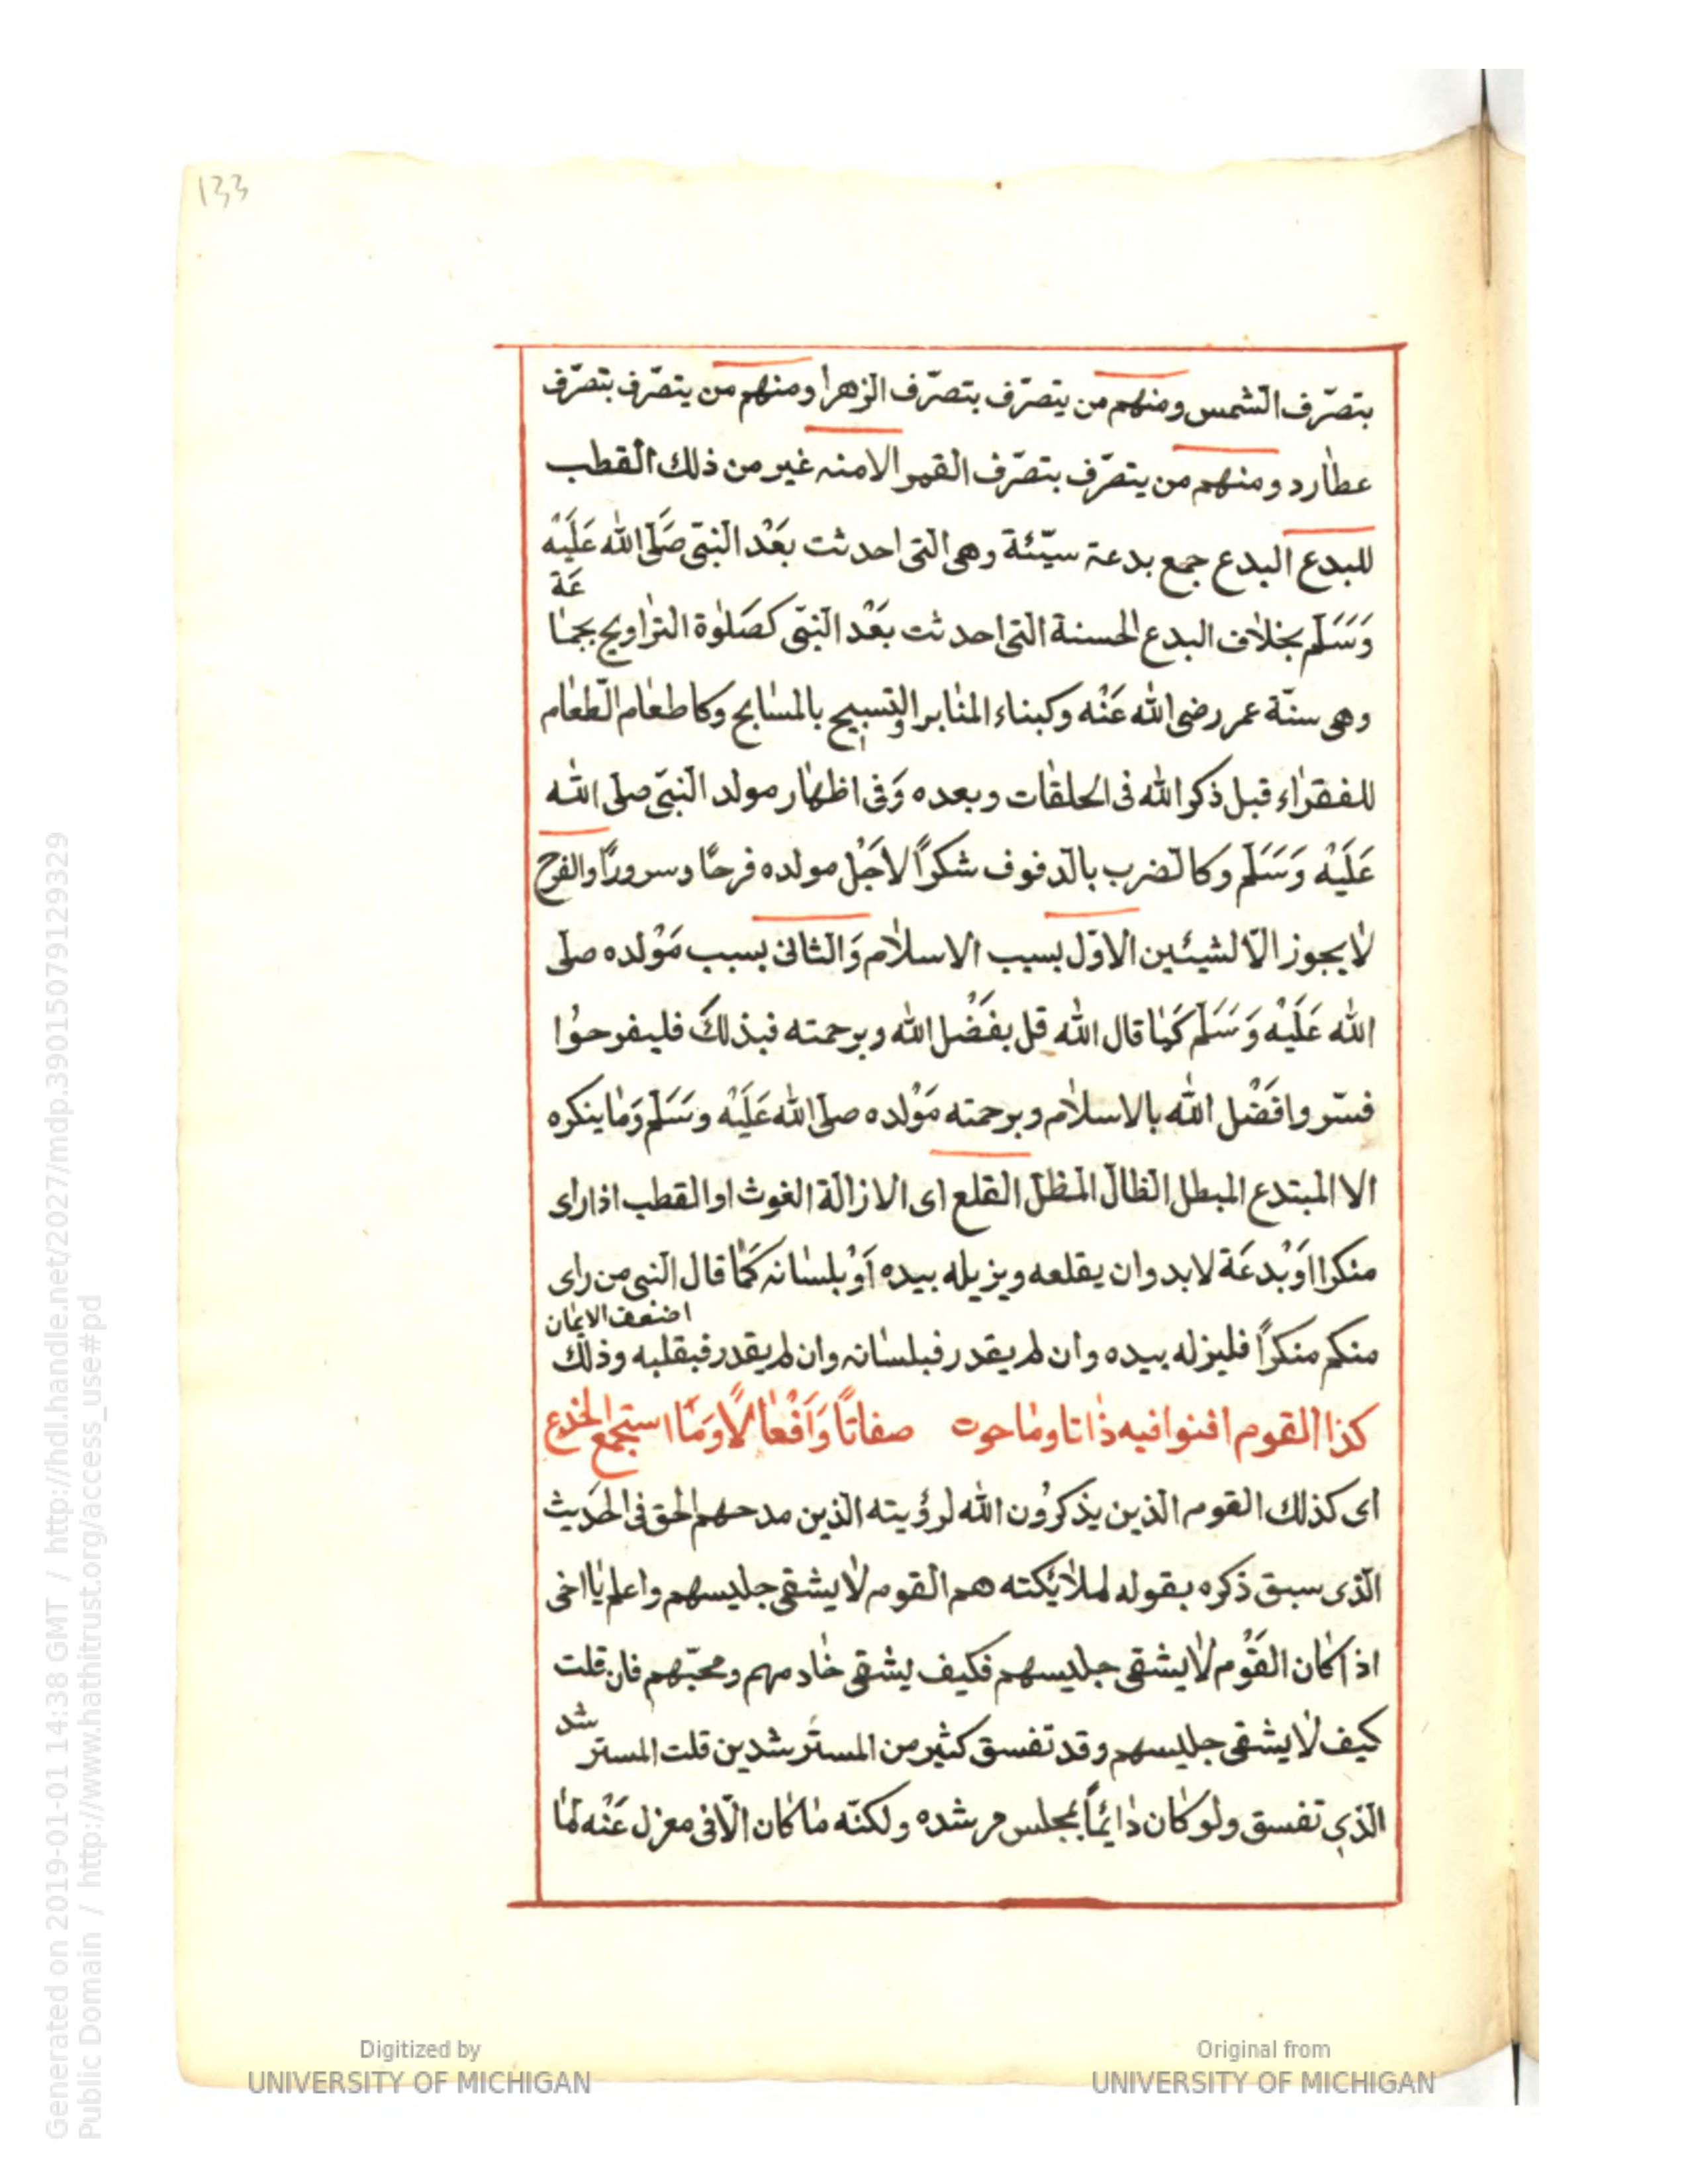 133
بتصرّف الشمس ومنهم من يتصرّف بتصرّف الزهرا ومنهم من يتصرّف بتصرّف
عطارد ومنهم من يتصرّف بتصرّف القمر الامنه غير من ذلك القطب
للبدع البدع جمع بدعة سيّئة وهى التى احدثت بَعْد النبىّ صَلّى الله عَلَيْه
وَسَلَّم بخلاف البدع الحسنة التى احدثت بَعْد النبىّ كصَلوٰة التراويح بجماعَة
وهى سنّة عمر رضى الله عَنْه وكبناء المنابر والتسبيح بالمسابح وكاطعام الطعام
للفقراء قبل ذكر الله فى الحلقات وبعده وَفى اظهار مولد النبىّ صلى الله
عَلَيْه وَسَلَّم وكالضرب بالدفوف شكراً لاَجْل مولده فرحًا وسرورًا والفرح
لا يجوز الّا لشيئين الاوّل بسبب الاسلام وَالثانى بسبب مَوْلده صلى
الله عَلَيْه وَسَلَّم كَما قال الله قل بفَضْل الله وبرحمته فبذلكَ فليفرحُوا
فسّروا فَضْل الله بالاسلام وبرحمته مَوْلده صلى الله عَلَيْه وسَلَّم وَما ينكره
الا المبتدع المبطل الظالّ المظلّ القلع اى الازالة الغوث او القطب اذا راى
منكرا اَوْ بدعَة لا بد وان يقلعه ويزيله بيده اَوْ بلسانه كَما قال النبى من راى
منكم منكراً فليزله بيده وان لم يقدر فبلسانه وان لم يقدر فبقلبه وذلك اضعف الايمان
كذا القوم افنوا فيه ذاتا وما حوت صفاتًا وَاَفْعالًا وَمَا استجمع الخدع
اى كذلك القوم الذين يذكرُون الله لرؤيته الذين مدحهم الحق فى الحَديث
الذى سبق ذكره بقوله لملائكته هم القوم لا يشقى جليسهم واعلم يا اخى
اذا كان القَوْم لا يشقى جليسهم فكيف يشقى خادمهم ومحبّهم فان قلت
كيف لا يشقى جليسهم وقد تفسق كثير من المسترشدين قلت المسترشد
الذى تفسق ولو كان دائماً بمجلس مرشده ولكنّه ما كان الّا فى معزل عَنْه لما
Generated on 2019-01-01 14:38 GMT / http://hdl.handle.net/2027/mdp.39015079129329
Public Domain / http://www.hathitrust.org/access_use#pd
Digitized by
UNIVERSITY OF MICHIGAN
Original from
UNIVERSITY OF MICHIGAN